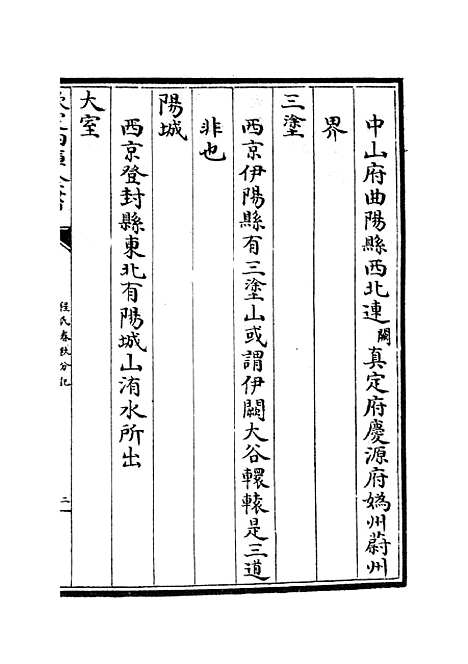 中山府曲陽縣西北連闕真定府慶源府媯州蔚州
界
三塗
西京伊陽縣有三塗山或謂伊闕大谷轘轅是三道
非也
陽城
西京登封縣東北有陽城山洧水所出
大室
程氏春秋分記